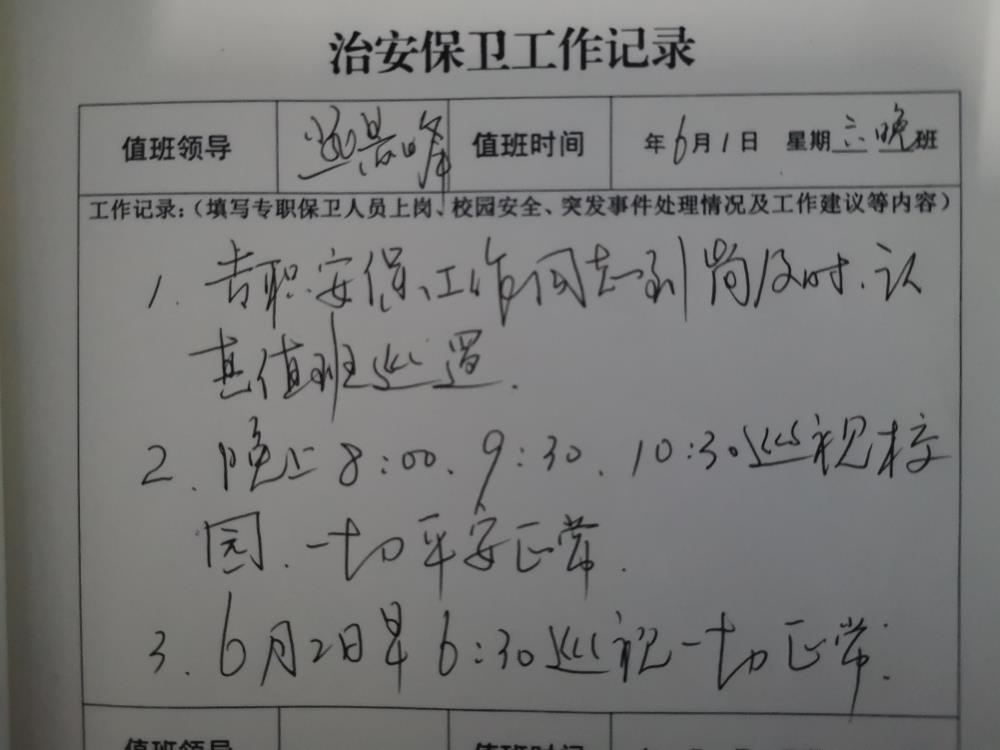 治安保卫工作记录
值班领导 值班时间 年6月1日 星期六晚班
工作记录：（填写专职保卫人员上岗、校园安全、突发事件处理情况及工作建议等内容）
1. 专职安保工作同志到岗及时、认
真值班巡逻.
2. 晚上8:00、9:30、10:30巡视校
园、一切平安正常.
3. 6月2日早6:30巡视一切正常.
值班领导 值班时间